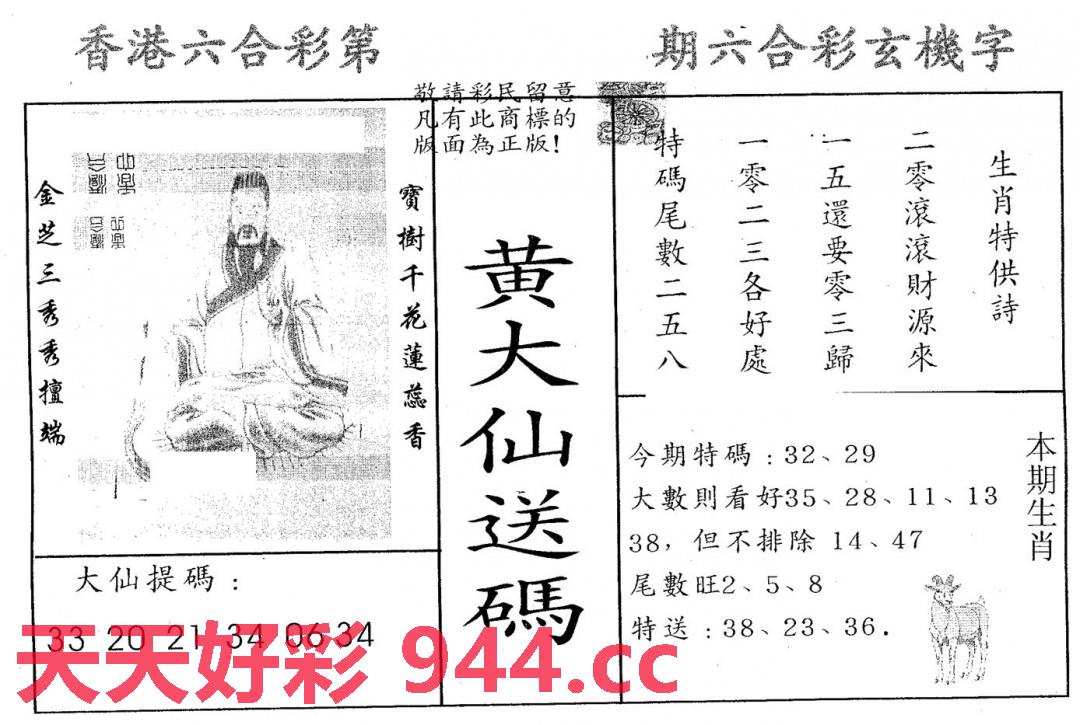 香港六合彩第
期六合彩玄機字
敬請彩民留意
凡有此商標的
版面為正版!
寶樹千花蓮蕊香
金芝三秀秀擅端
大仙提碼:
33 20 21 34 06 34
黃大仙送碼
生肖特供詩
二零滾滾財源來
一五還要零三歸
一零二三各好處
特碼尾數二五八
本期生肖
今期特碼:32、29
大數則看好35、28、11、13
38,但不排除 14、47
尾數旺2、5、8
特送:38、23、36.
天天好彩 944.cc